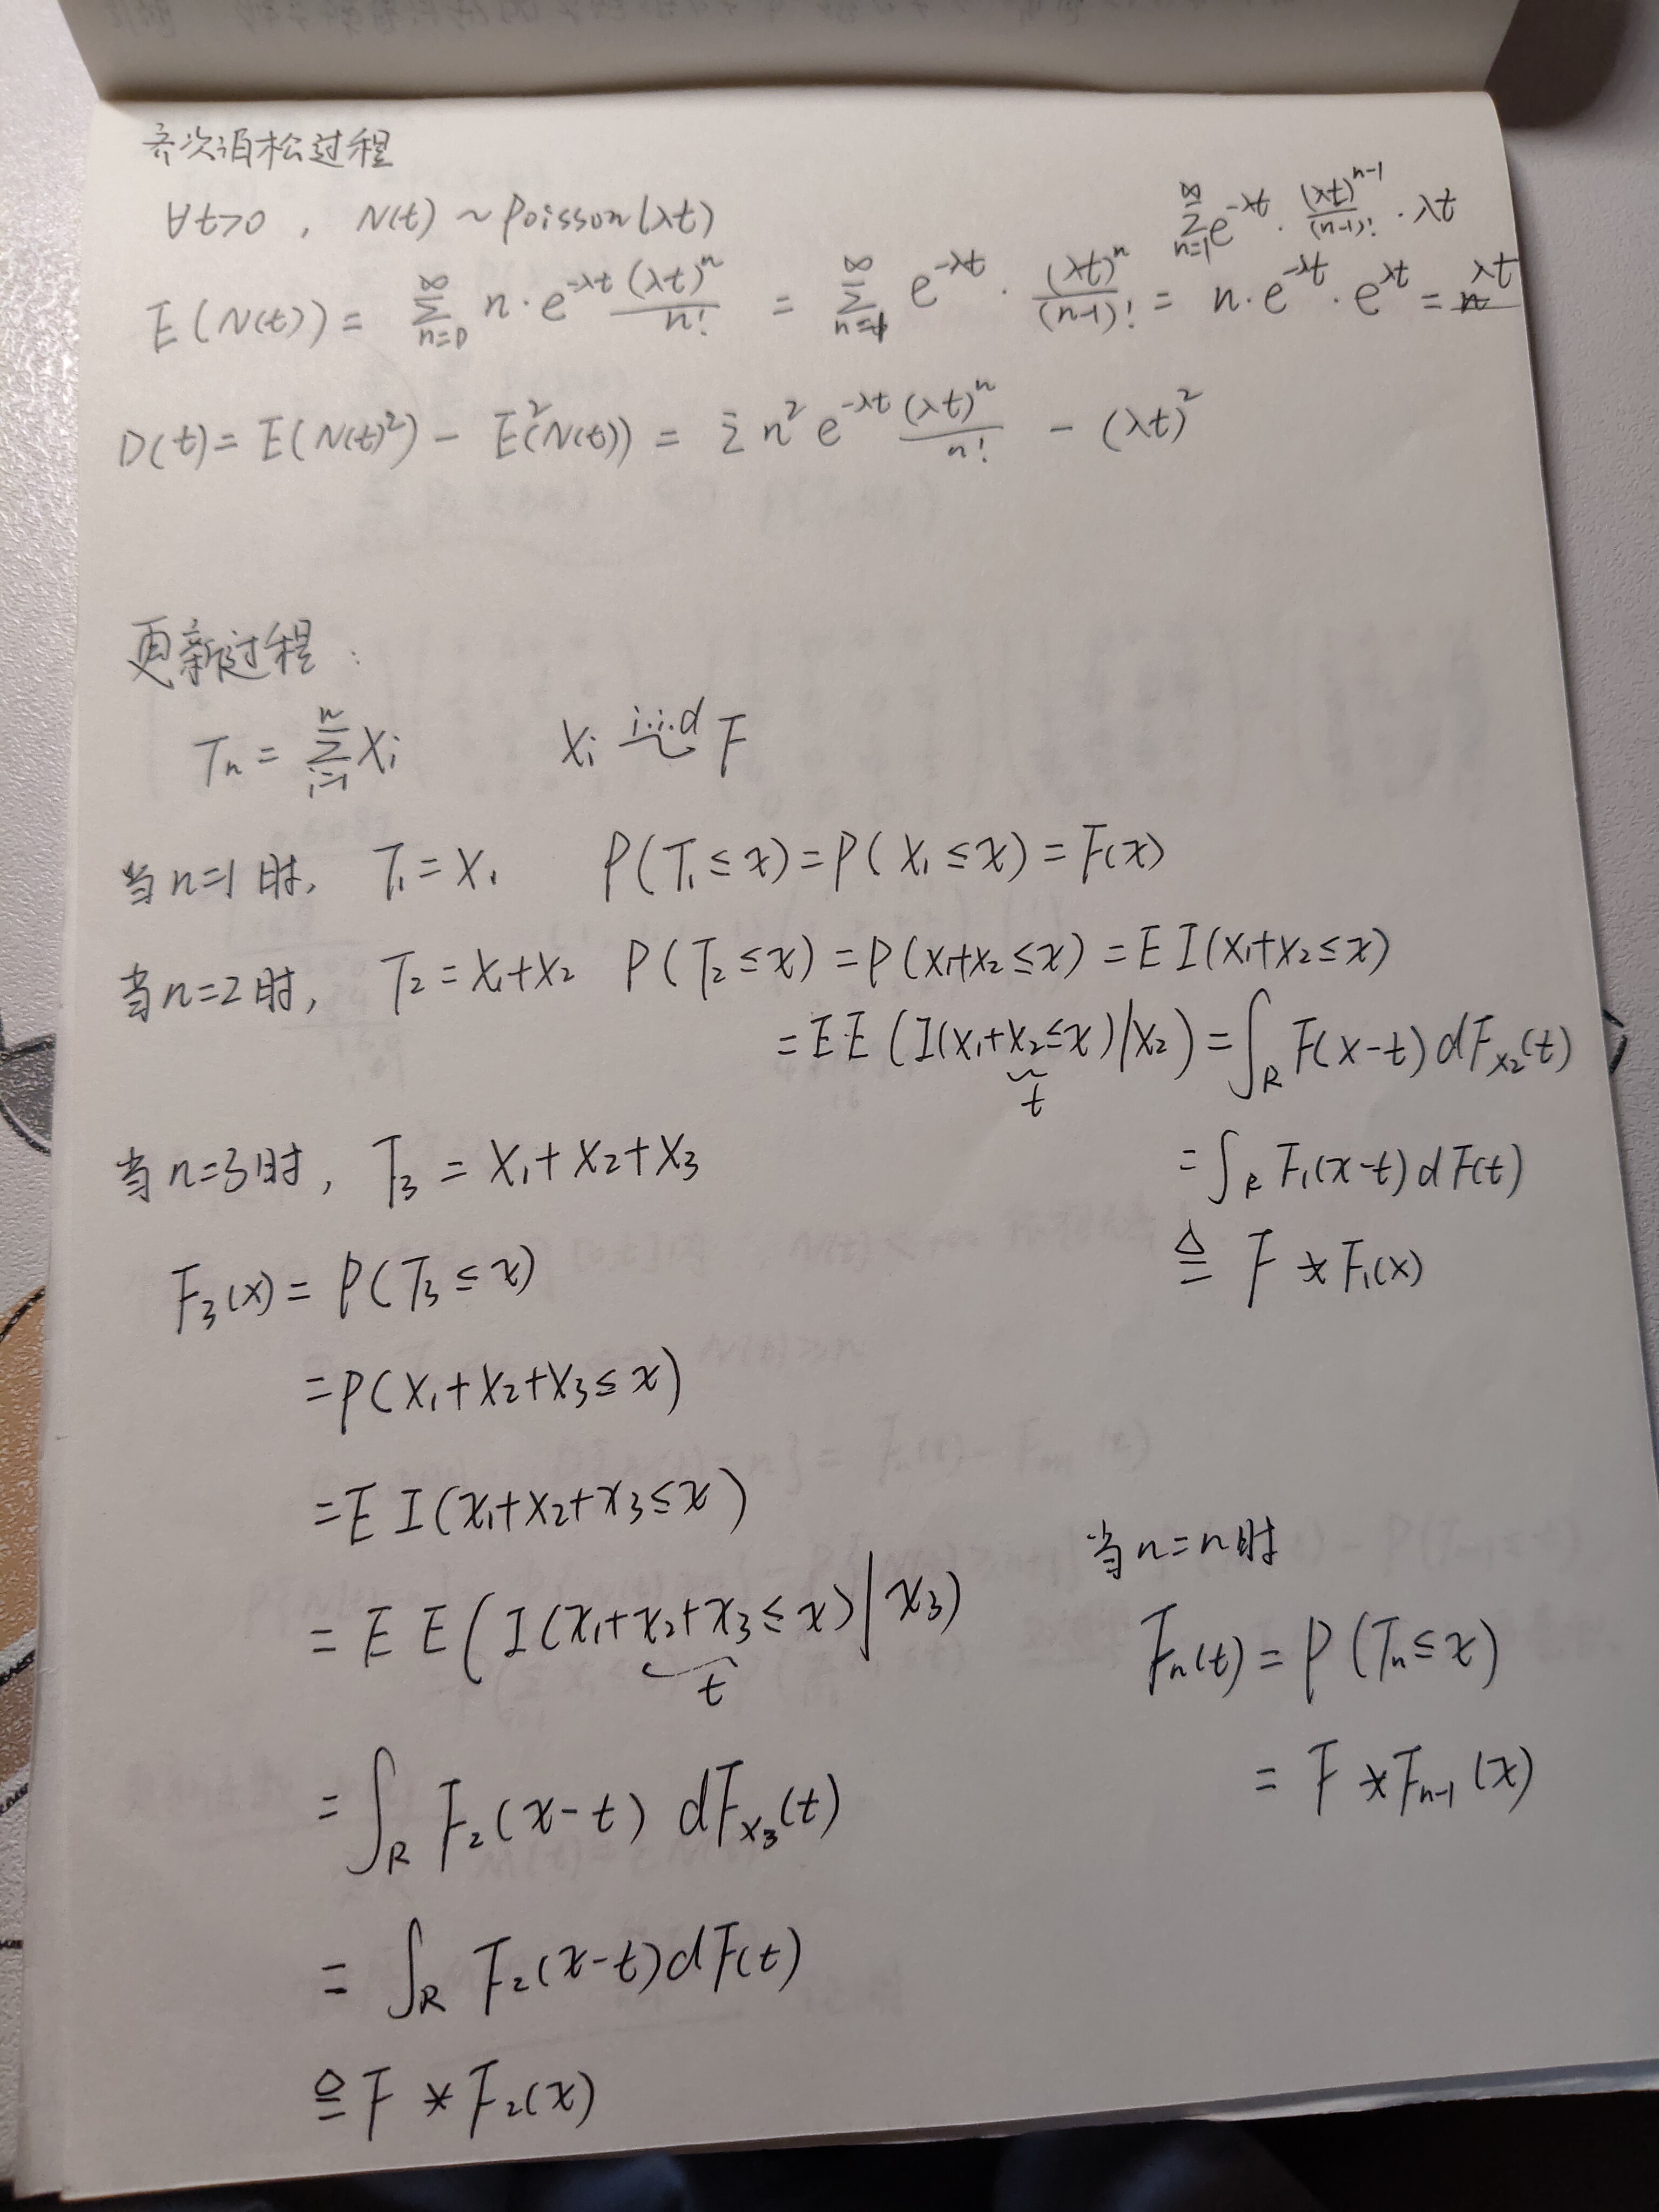 齐次泊松过程
∀t>0 , N(t) ~ Poisson(λt)
∑_{n=1}^{∞} e^{-λt} · (λt)^{n-1}/(n-1)! · λt
E(N(t)) = ∑_{n=0}^{∞} n · e^{-λt} (λt)^n/n! = ∑_{n=1}^{∞} e^{-λt} · (λt)^n/(n-1)! = n · e^{-λt} · e^{λt} = λt
D(t) = E(N(t)^2) - E^2(N(t)) = ∑ n^2 e^{-λt} (λt)^n/n! - (λt)^2
更新过程:
T_n = ∑_{i=1}^{n} X_i X_i i.i.d ~ F
当n=1时, T_1 = X_1 P(T_1 ≤ x) = P(X_1 ≤ x) = F(x)
当n=2时, T_2 = X_1+X_2 P(T_2 ≤ x) = P(X_1+X_2 ≤ x) = E I(X_1+X_2 ≤ x)
= E E (I(X_1+X_2 ≤ x)|X_2) = ∫_R F(x-t) dF_{X_2}(t)
t
= ∫_R F_1(x-t) dF(t)
≜ F * F_1(x)
当n=3时, T_3 = X_1+X_2+X_3
F_3(x) = P(T_3 ≤ x)
= P(X_1+X_2+X_3 ≤ x)
= E I(X_1+X_2+X_3 ≤ x)
= E E (I(X_1+X_2+X_3 ≤ x)|X_3)
t
= ∫_R F_2(x-t) dF_{X_3}(t)
= ∫_R F_2(x-t) dF(t)
≜ F * F_2(x)
当n=n时
F_n(t) = P(T_n ≤ x)
= F * F_{n-1}(x)